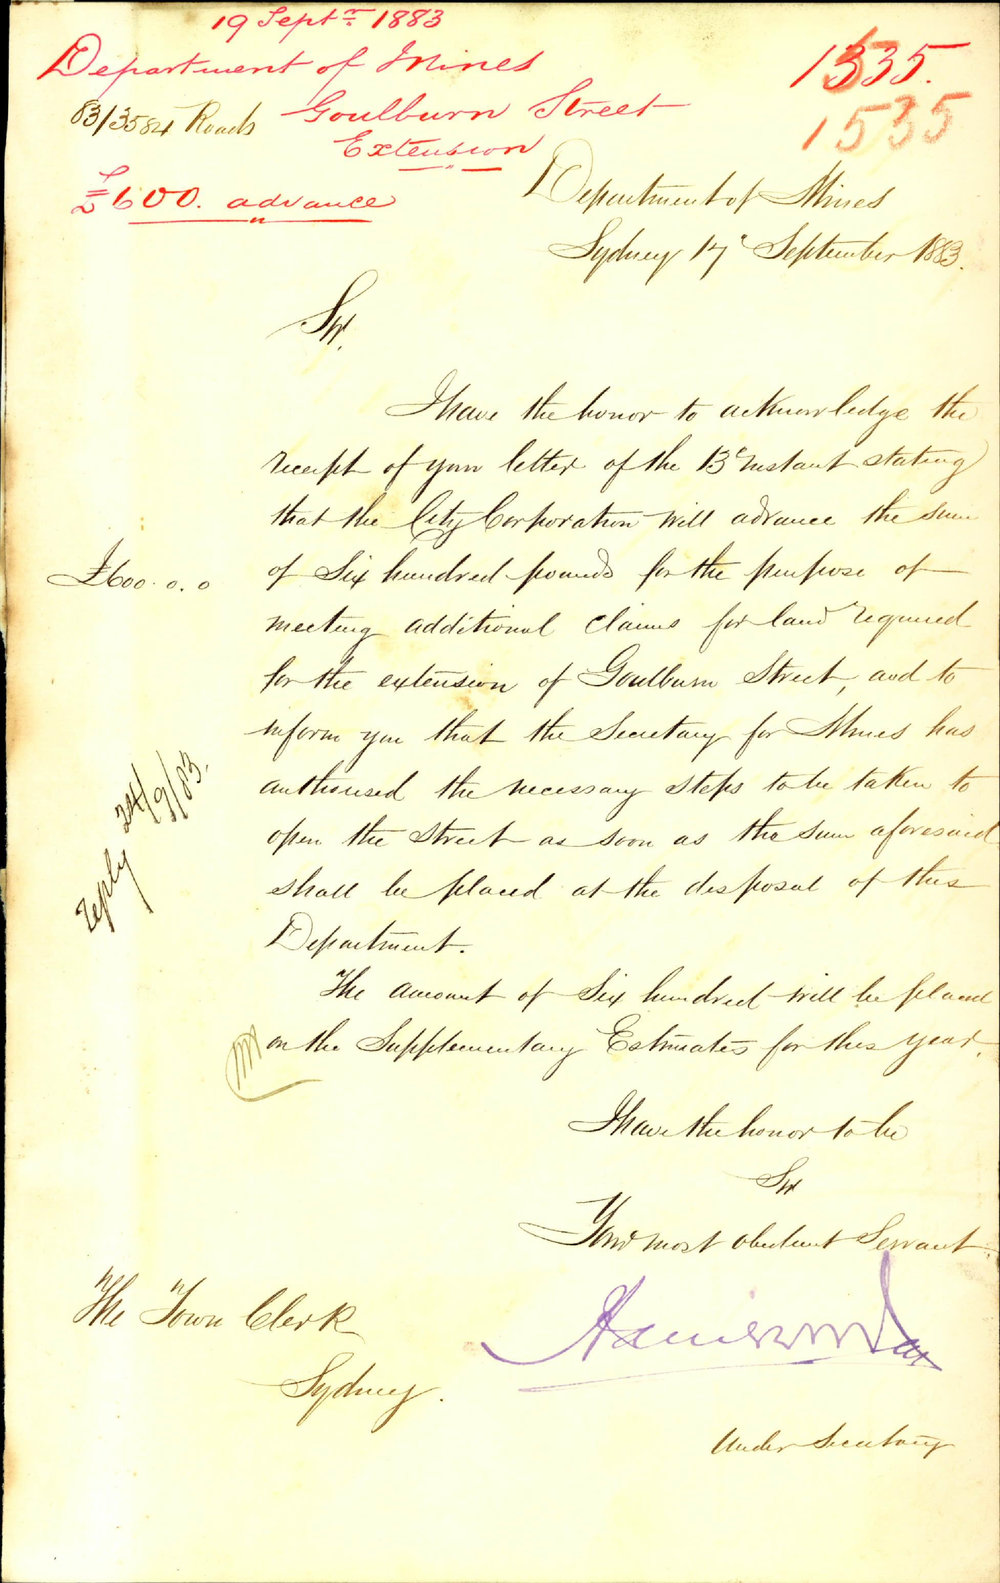 19 Septr 1883
Department of Mines
1535.
83/3584 Roads
Goulburn Street
1535
Extension
£600. advance
Department of Mines
Sydney 17 September 1883.
Sir,
I have the honor to acknowledge the
receipt of your letter of the 13th instant stating
that the City Corporation will advance the sum
£600.0.0
of Six hundred pounds for the purpose of
meeting additional claims for land required
for the extension of Goulburn Street, and to
inform you that the Secretary for Mines has
authorised the necessary steps to be taken to
open the Street as soon as the sum aforesaid
shall be placed at the disposal of this
Department.
Reply 24/9/83.
The amount of Six hundred will be placed
on the Supplementary Estimates for this year.
I have the honor to be
Sir
Your most obedient Servant
The Town Clerk
Sydney.
Under Secretary